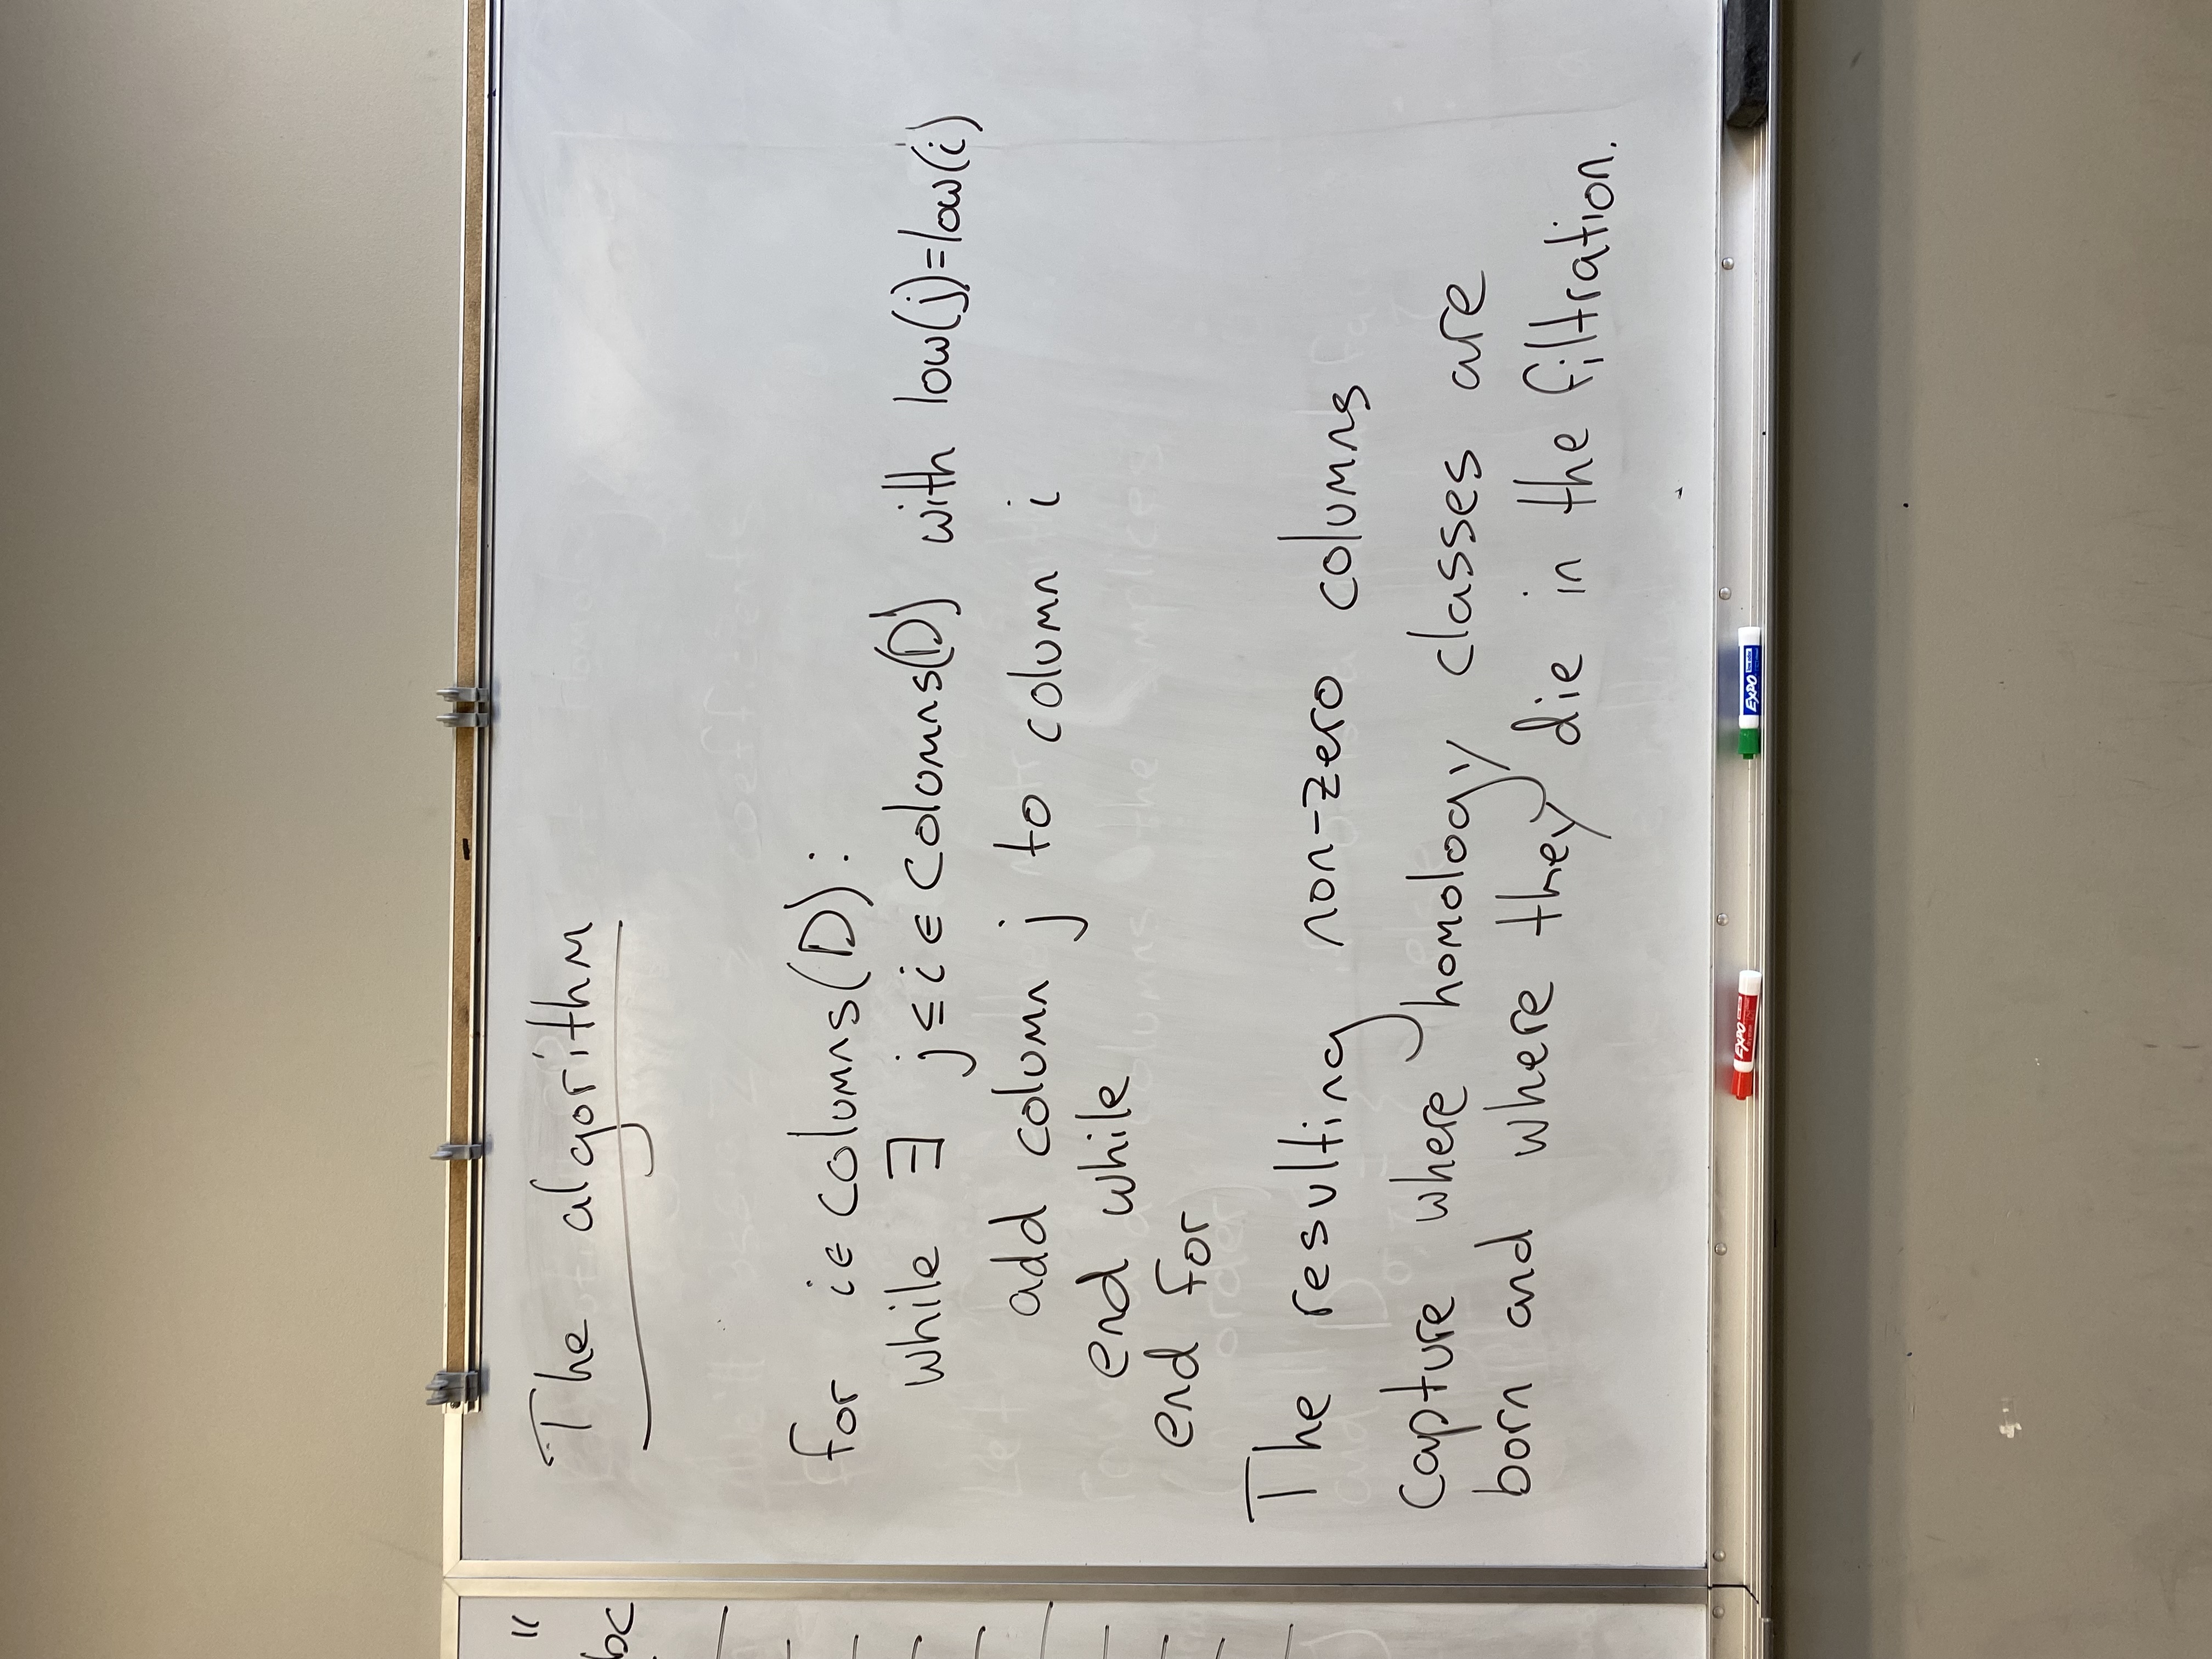 "
bc
The algorithm
for i ∈ columns(D):
while ∃ j ≤ i ∈ Colomns(D) with low(j)=low(i)
add column j to column i
end while
end for
The resulting non-zero columns
capture where homology classes are
born and where they die in the filtration.
EXPO
EXPO